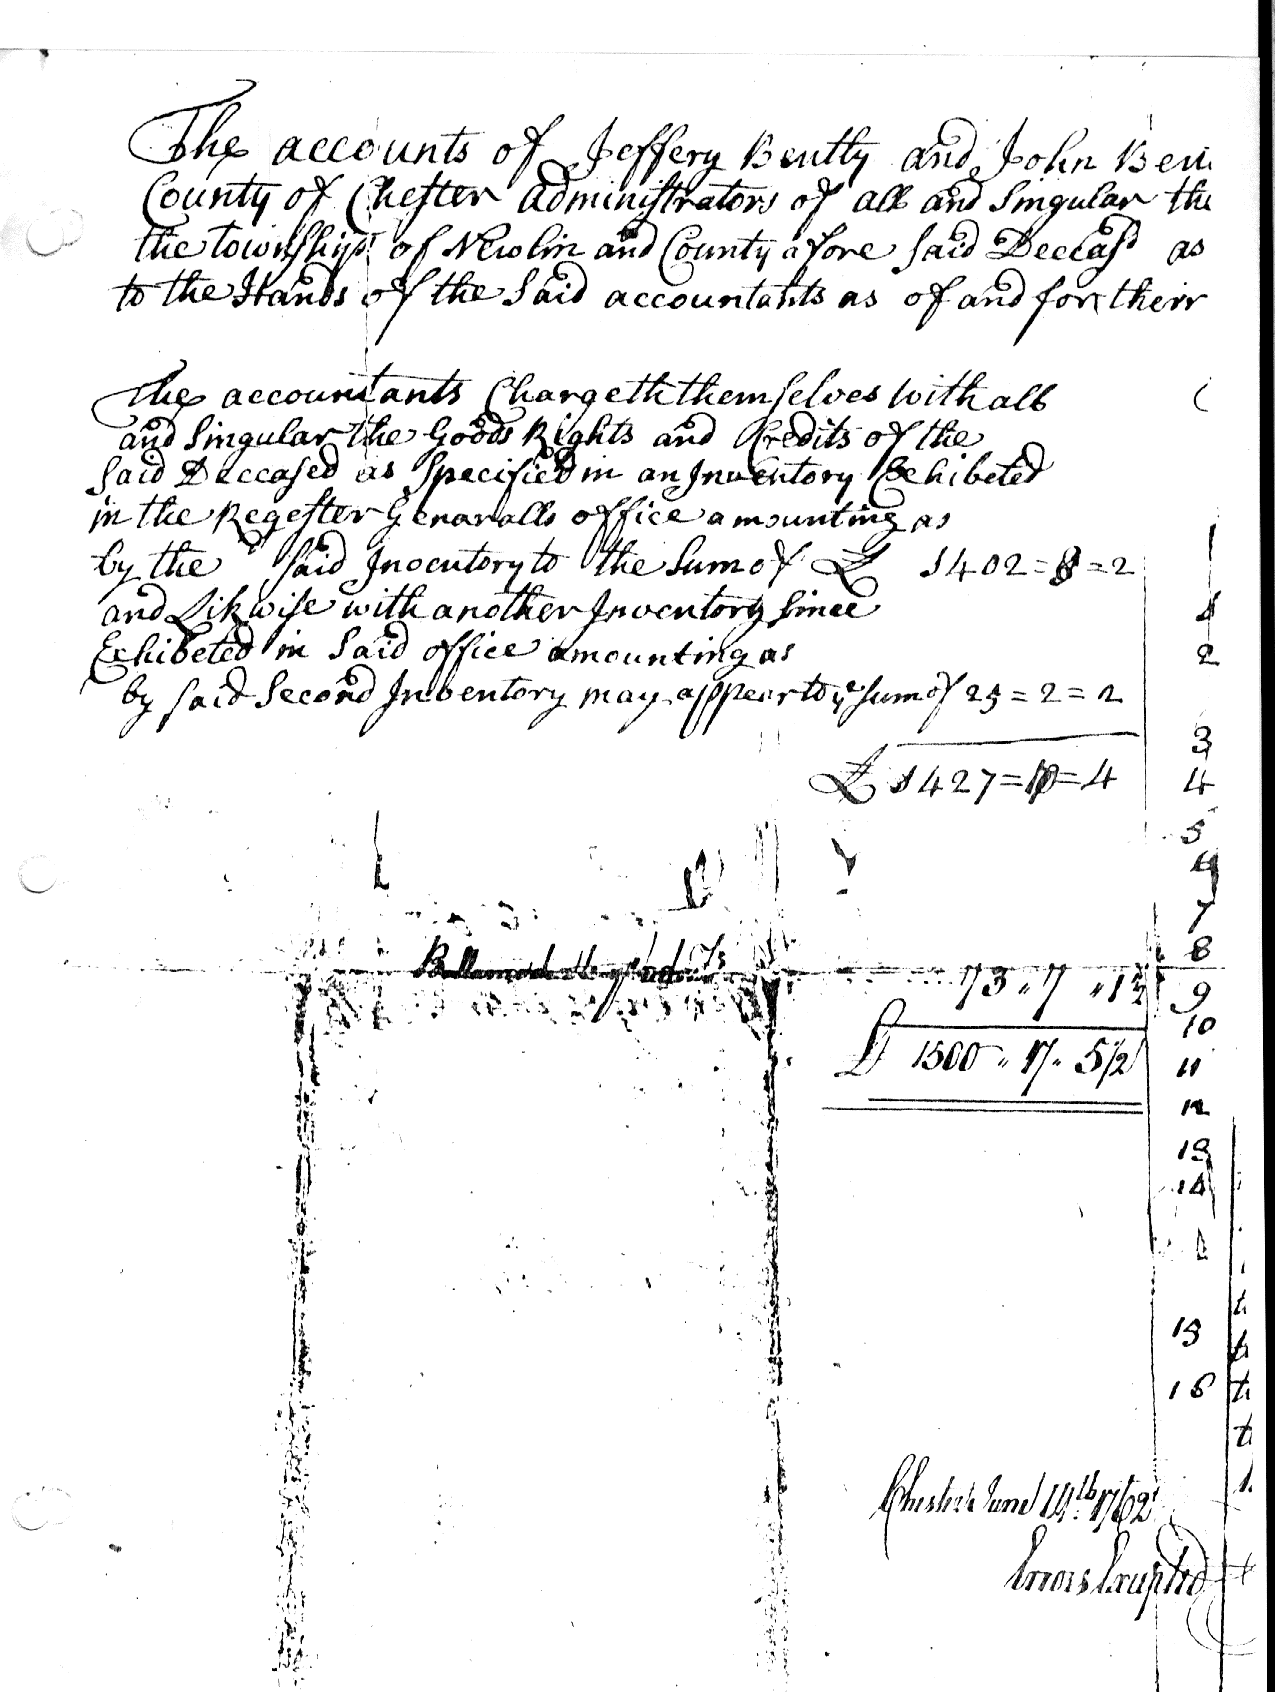 The accounts of Jeffery Bently and John Ben
County of Chester administrators of all and Singular the
the township of Newlin and County afore Said Deceasd as
to the Hands of the Said accountants as of and for their
The accountants Chargeth themselves with all
and Singular the Goods Rights and Credits of the
Said Deceased as Specified in an Inventory Exhibeted
in the Regester Genaralls office amounting as
by the Said Inventory to the Sum of £ 1402=8=2
and Likwise with another Inventory Since
Exhibeted in Said office amounting as
by said Second Inventory may appear to ye sum of 25=2=2
£ 1427=10=4
73 " 7 " 1 1/2
£ 1500 " 17 " 5 1/2
1
2
3
4
5
6
7
8
9
10
11
12
13
14
15
16
Chester June 14th 1762
Errors Excepted